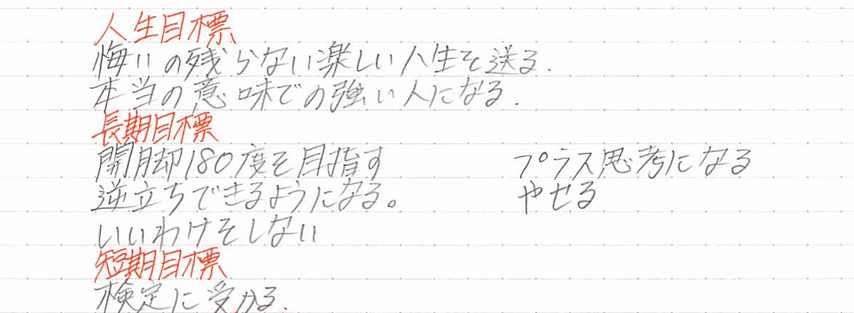 人生目標
悔いの残らない楽しい人生を送る.
本当の意味での強い人になる.
長期目標
開脚180度を目指す プラス思考になる
逆立ちできるようになる。 やせる
いいわけをしない
短期目標
検定に受かる.